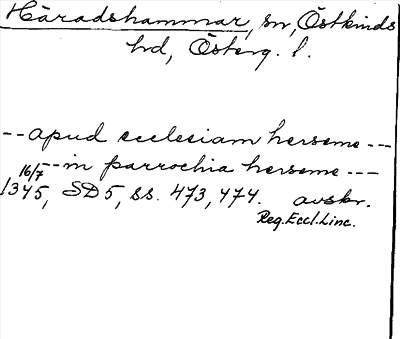 Häradshammar, sn, Östkinds
hd, Österg. l.
--apud ecclesiam herseme---
--in parrochia herseme---
16/7
1345, SD5, ss. 473, 474. avskr.
Reg. Eccl. Linc.